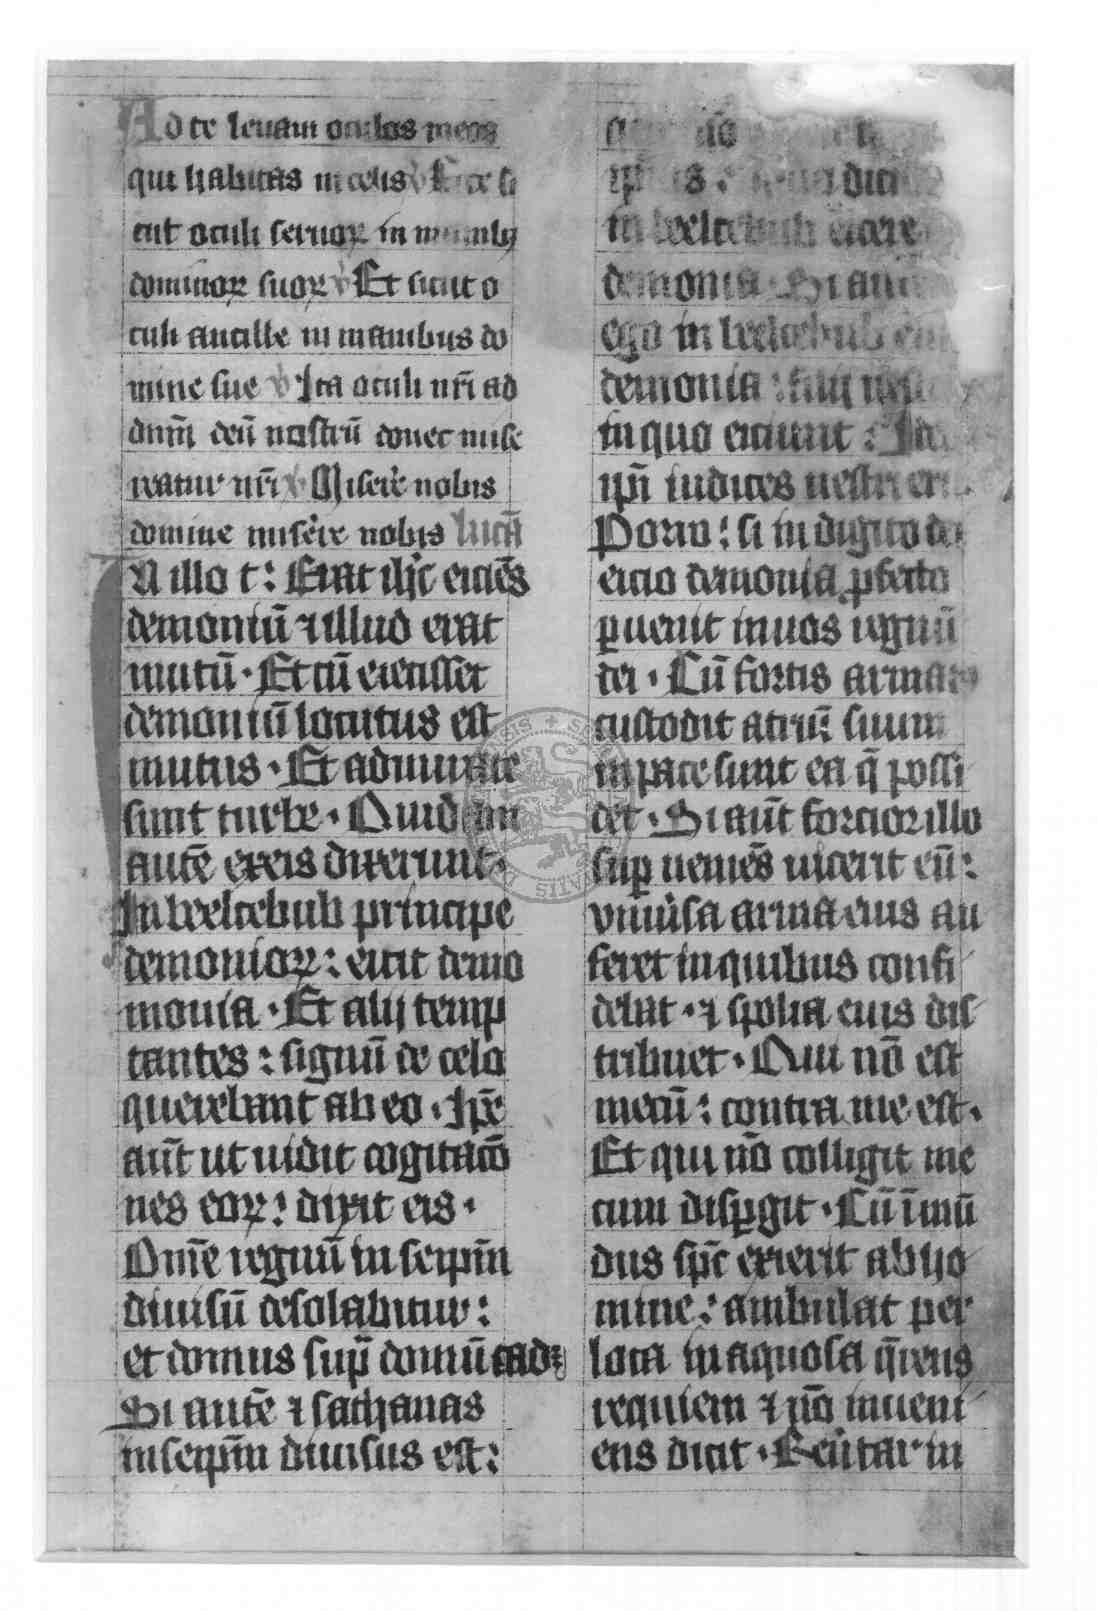 Ad te leuaui oculos meos
qui habitas in celis ℣ Ecce si
cut oculi seruoꝝ in manibꝫ
dominoꝝ suoꝝ ℣ Et sicut o
culi ancille in manibus do
mine sue ℣ Ita oculi nr̄i ad
dnm̄ deū nostrū donec mise
reatur nr̄i ℣ Miserere nobis
domine miserere nobis lucā
In illo t: Erat ih̄c eiciēs
demoniū ⁊ illud erat
mutū · Et cū eiecisset
demoniū locutus est
mutus · Et admirate
sunt turbe · Quidam
autē ex eis dixerunt ·
In beelcebub principe
demonioꝝ: eicit demo
monia · Et alij temp
tantes: signū de celo
querebant ab eo · Ip̄e
aūt ut uidit cogitacō
nes eoꝝ: dixit eis ·
Om̄e regnū in seipm̄
diuisū desolabitur:
et domus sup̄ domū cadꝫ
Si autē ⁊ sathanas
in seipm̄ diuisus est:
ip̄ius: dici
in beelcebub eicere
demonia · Si aut
ego in beelcebub
demonia: filij
in quo eiciunt: Id
ip̄i iudices uestri er
Porro: si in digito dei
eicio demonia ꝓfecto
ꝑuenit in uos regnū
dei · Cū fortis armatꝰ
custodit atriū suum
in pace sunt ea q̄ possi
det · Si aūt forcior illo
suꝑ ueniēs uicerit eū:
vniūsa arma eius au
feret in quibus confi
debat · ⁊ spolia eius dis
tribuet · Qui nō est
mecū: contra me est ·
Et qui nō colligit me
cum disꝑgit · Cū īmū
dus sp̄c exierit ab ho
mine: ambulat per
loca inaquosa q̄rens
requiem ⁊ nō inueni
ens dicit · Reūtar in